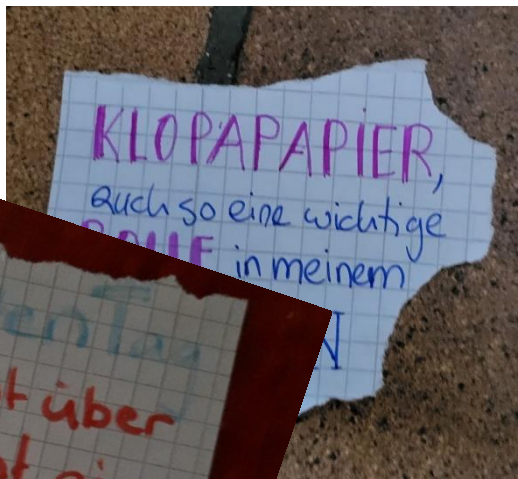 KLOPAPAPIER,
auch so eine wichtige
in meinem
N
Tag
t über